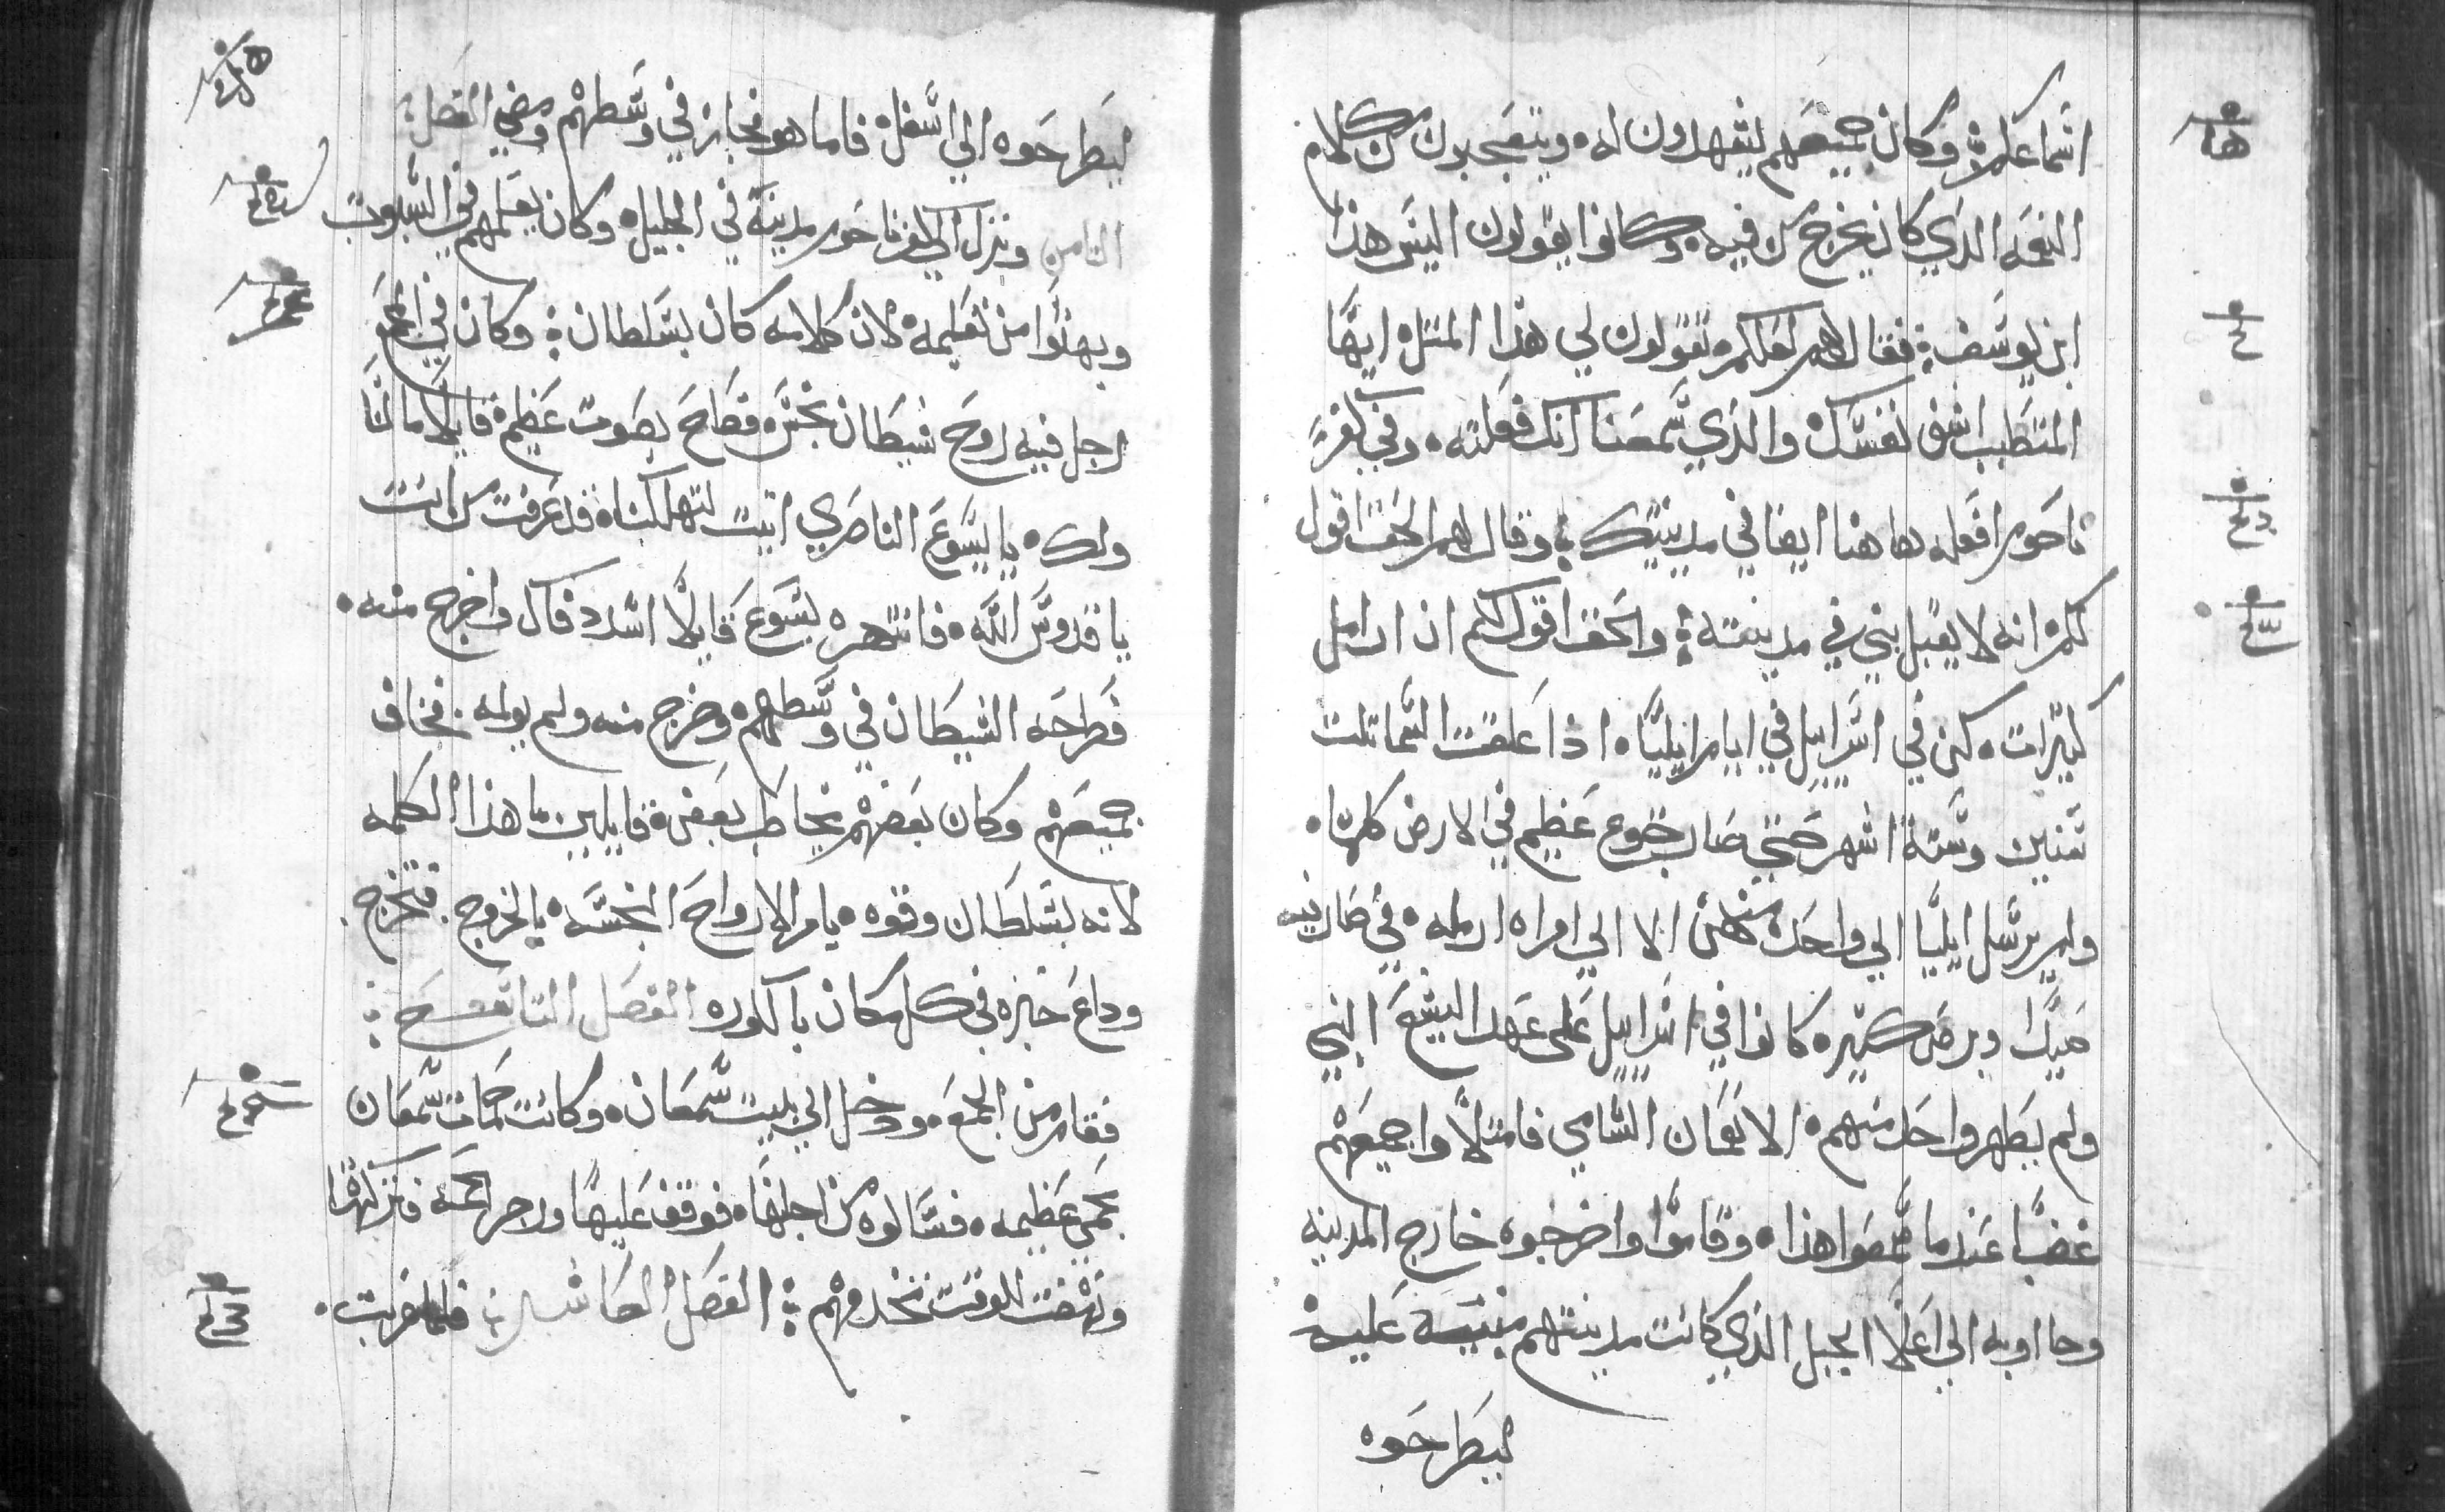 اسماعكم وكان جميعهم يشهدون له ويتعجبون من كلام
النعمه الذي كان يخرج من فيه وكانوا يقولون اليس هذا
ابن يوسف فقال لهم لعلكم تقولون لي هذا المثل ايها
المتطبب اشفي نفسك والذي سمعنا انك فعلته في كفر
ناحوم افعله هاهنا ايضا في مدينتك وقال لهم الحق اقول
لكم انه لا يقبل نبي في مدينته والحق اقول لكم ان ارامل
كثيرات كن في اسراييل في ايام ايليا اذ اغلقت السما ثلث
سنين وستة اشهر حتي صار جوع عظيم في الارض كلها
ولم يرسل ايليا الي واحده منهن الا الي امراه ارمله في صارفيه
صيدا وبرص كثيره كانوا في اسراييل علي عهد اليشع النبي
ولم يطهر واحد منهم الا نعمان الشامي فامتلاوا جميعهم
غضبا عندما سمعوا هذا وقاموا واخرجوه خارج المدينه
وجاوا به الي اعلا الجبل الذي كانت مدينتهم مبنيه عليه
ليطرحوه
ليطرحوه الي اسفل فاما هو فجاز في وسطهم ومضي الفصل
الثامن ونزل الي كفرناحوم مدينة في الجليل وكان يعلمهم في السبوت
وبهتوا من تعليمه لان كلامه كان بسلطان وكان في المجمع
رجل فيه روح شيطان نجس فصاح بصوت عظيم قايلا ما لنا
ولك يا يسوع الناصري اتيت لتهلكنا قد عرفت من انت
يا قدوس الله فانتهره يسوع قايلا اسدد فاك واخرج منه
فطرحه الشيطان في وسطهم وخرج منه ولم يولمه فخاف
جميعهم وكان بعضهم يخاطب بعض قايلين ما هذا الكلمه
لانه بسلطان وقوه يامر الارواح النجسه بالخروج فتخرج
وداع خبره في كل مكان بالكوره الفصل التاسع
فقام من المجمع ودخل الي بيت سمعان وكانت حمات سمعان
بحمي عظيمه فسالوه من اجلها فوقف عليها وزجر الحمي فتركتها
ونهضت للوقت تخدمهم الفصل العاشر فلما غربت